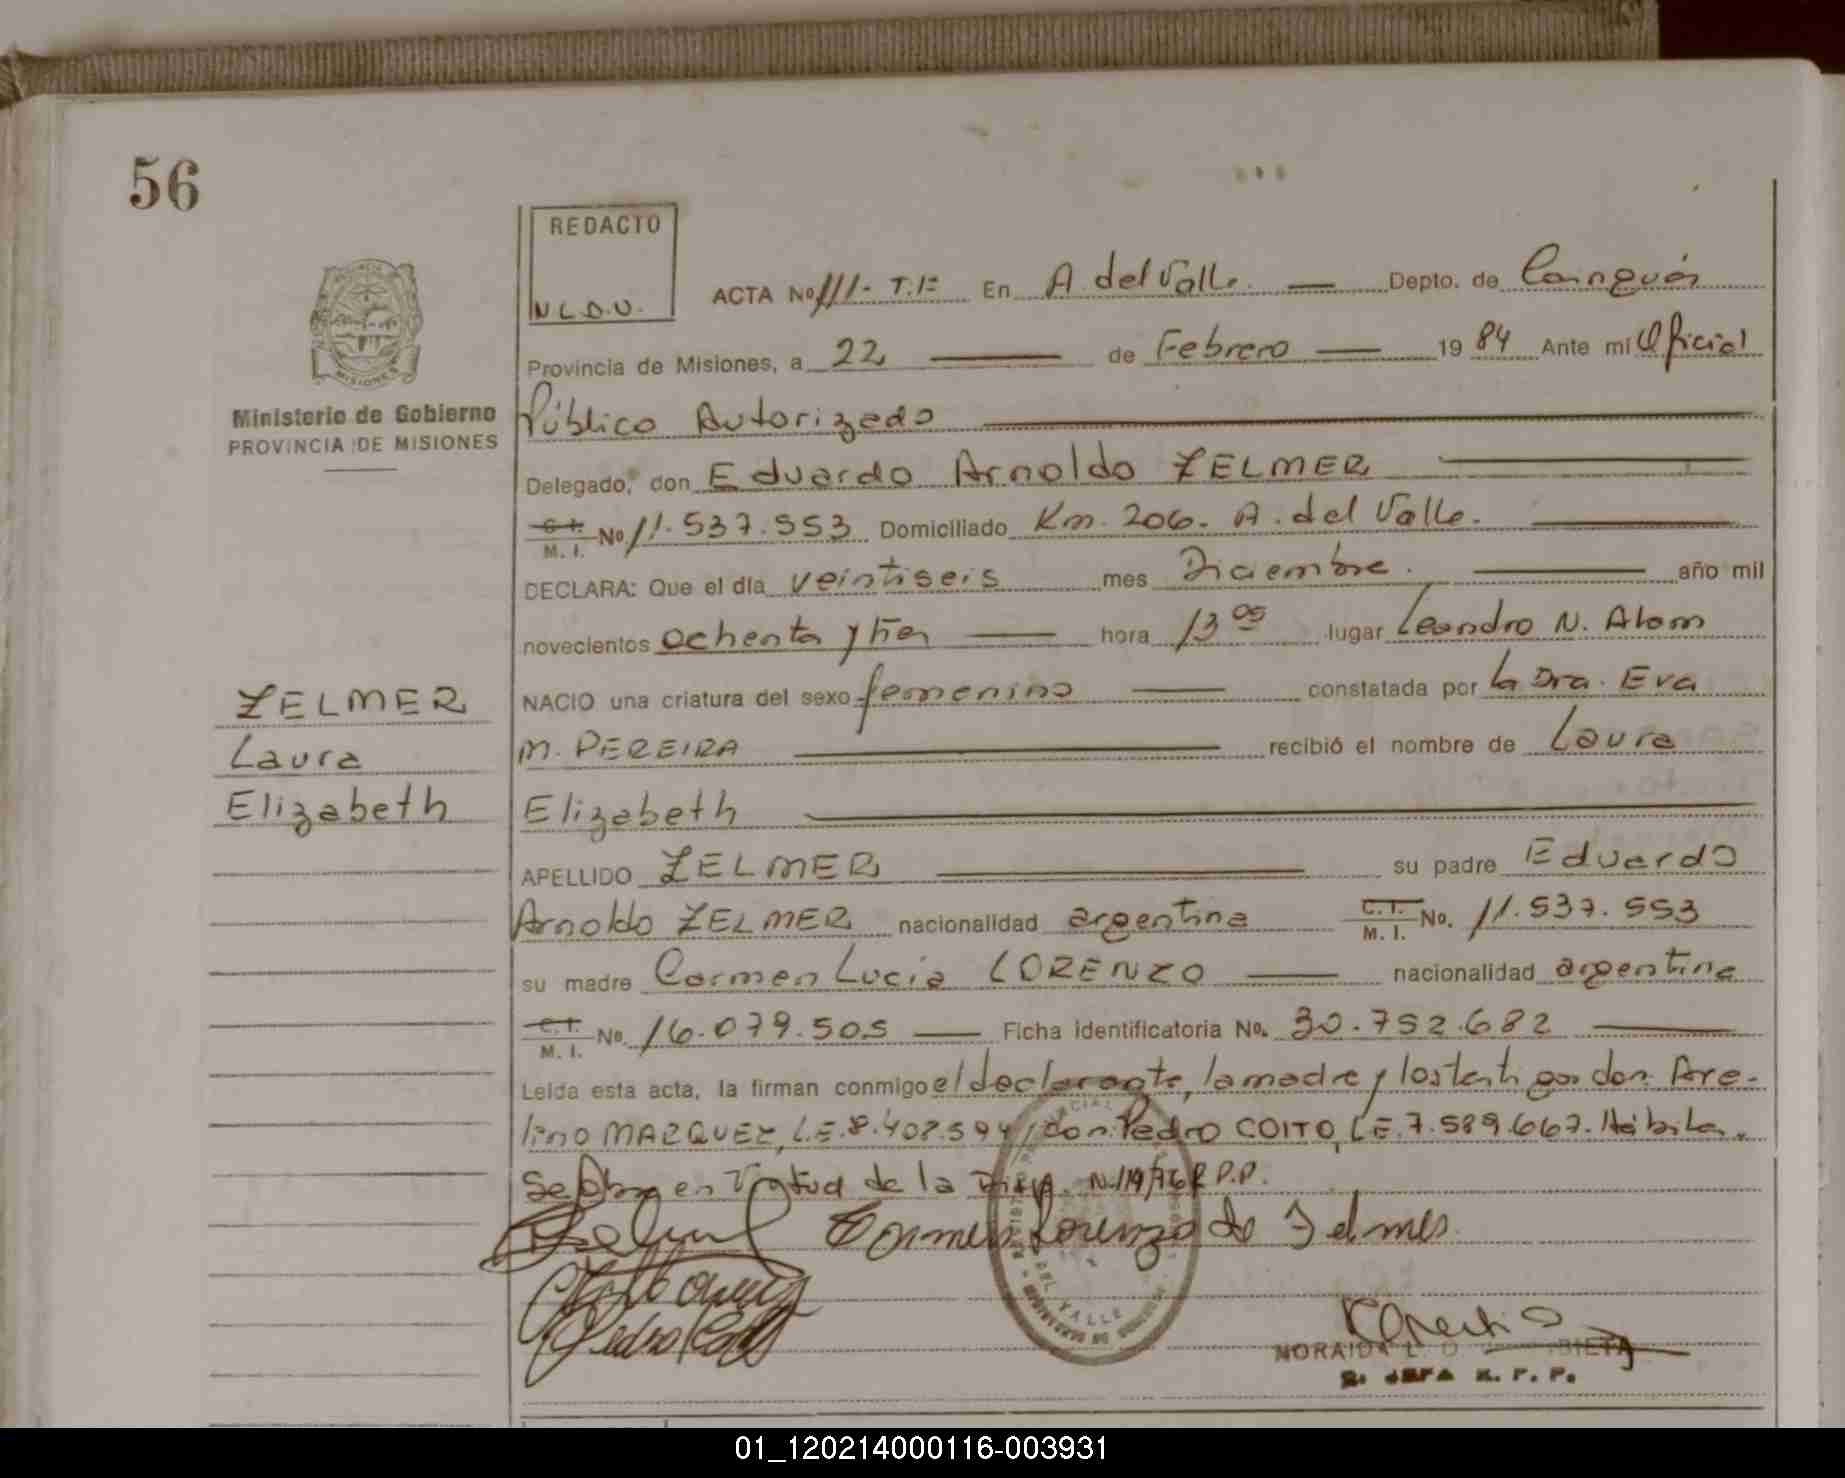 56
REDACTO
N L D.U.
ACTA No 111- T.1= En A. del Valle. Depto. de Cainguás
Provincia de Misiones, a 22 de Febrero 1984 Ante mi Oficial
Ministerio de Gobierno
PROVINCIA DE MISIONES
Público Autorizado
Delegado, don Eduardo Arnoldo ZELMER
C.I. M. I. No 11.537.553 Domiciliado Km. 206. A. del Valle.
DECLARA: Que el día veintiseis mes Diciembre. año mil
novecientos ochenta y tres hora 13 05 lugar Leandro N. Alem
NACIO una criatura del sexo femenino constatada por la Dra. Eva
M. PEREIRA recibió el nombre de Laura
Elizabeth
ZELMER
Laura
Elizabeth
APELLIDO ZELMER su padre Eduardo
Arnoldo ZELMER nacionalidad argentina C.I. M. I. No. 11.537.553
su madre Carmen Lucia LORENZO nacionalidad argentina
C.I. M. I. No. 16.079.505 Ficha identificatoria No. 30.752.682
Leída esta acta, la firman conmigo el declarante, la madre y los testigos don Are-
lino MARQUEZ, L.E. 8.408.594 y don Pedro COITO, L.E. 7.589.667. Hábiles.
Se labra en Virtud de la Disp. N. 119/76 R.P.P.
Carmen Lorenzo de Zelmer.
Pedro Coito
DEL VALLE
NORAIDA L.
JEFA R. P. P.
01_120214000116-003931